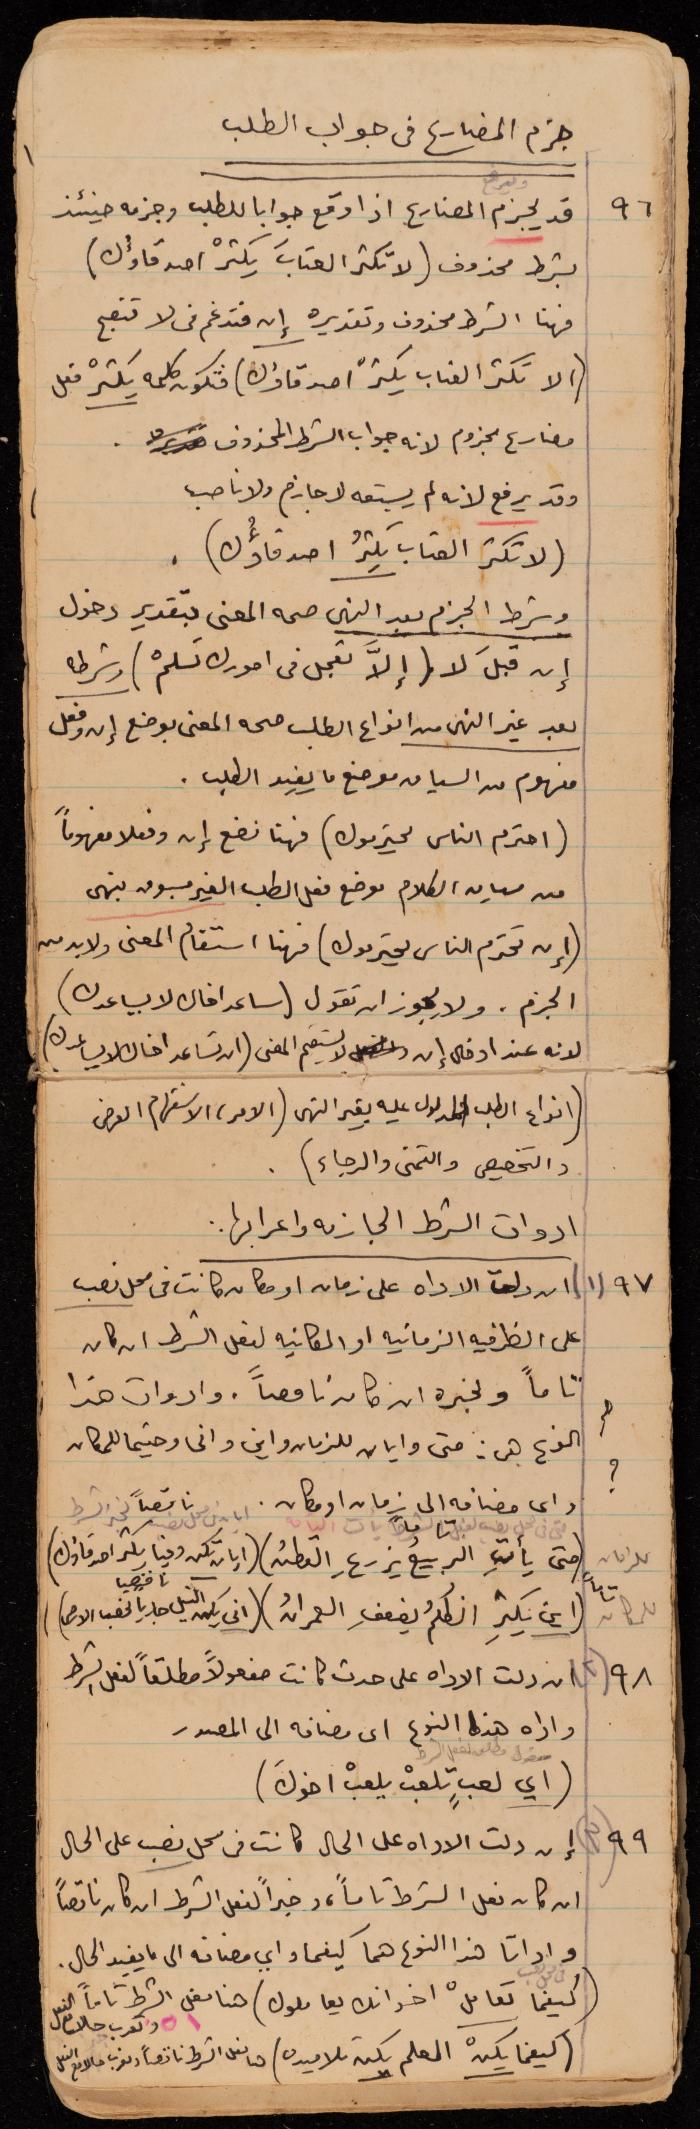 جزم المضارع فى جواب الطلب
٩٦ قد يجزم المضارع اذا وقع جوابا للطلب وجزمه حينئذ
بشرط محذوف (لا تكثر العتابَ يكثرْ اصدقاؤُك)
فهنا الشرط محذوف وتقديره إن فتدغم فى لا فتصبح
(الا تكثر العتاب يكثرْ اصدقاؤك) فتكون كلمه يكثرْ فعل
مضارع مجزوم لانه جواب الشرط المحذوف .
وقد يرفع لانه لم يسبقه لا جازم ولا ناصب
(لا تكثر العتاب يكثرُ اصدقاؤُك) .
وشرط الجزم بعد النهى صحه المعنى بتقدير دخول
إن قبل لا (إلاَّ تعجل فى امورك تسلمْ) وشرطه
بعد غير النهى من انواع الطلب صحه المعنى بوضع إن وفعل
مفهوم من السياق موضع ما يفيد الطلب .
(احترم الناس يحترموك) فهنا نضع إن وفعلا مفهوماً
من سياق الكلام موضع فعل الطلب الغير مسبوق بنهى
(إن تحترم الناس يحترموك) فهنا استقام المعنى ولا بد من
الجزم . ولا يجوز ان تقول (ساعد اخاك لا يساعدك)
لانه عند ادخال إن لا يستقيم المعنى (ان تساعد اخاك لا يساعدك)
(انواع الطلب المدلول عليه بغير النهى (الامر، الاستفهام العرض
والتحضيض والتمنى والرجاء) .
ادوات الشرط الجازمه واعرابها :
٩٧ (١) ان دلت الاداه على زمان او مكان كانت فى محل نصب
على الظرفيه الزمانيه او المكانيه لفعل الشرط ان كان
تاماً ولخبره ان كان ناقصاً . وادوات هذا
النوع هى : متى وايان للزمان واين وانى وحيثما للمكان
؟
واى مضافه الى زمان او مكان .
تاماً
ناقصاً لخبر الشرط
للزمان (متى يأتِ الربيعُ يزرعِ القطنُ) (ايان تكن وفيا يكثر اصدقاؤك)
للمكان تاماً (اين يكثرِ الظلمُ يضعفِ العمرانُ) (انى يكن النيل جاريا تخصب الارض)
٩٨ (٢) ان دلت الاداه على حدث كانت مفعولاً مطلقاً لفعل الشرط
واداه هذا النوع اى مضافه الى المصدر
مفعول مطلق لفعل الشرط
(اىَ لعبٍ تلعبْ يلعبْ اخوكَ)
٩٩ (٣) إن دلت الاداه على الحال كانت فى محل نصب على الحال
ان كان فعل الشرط تاماً، وخبراً لفعل الشرط ان كان ناقصاً
واداتا هذا النوع هما كيفما واي مضافه الى ما يفيد الحال .
(كيفما تعاملْ اخوانك يعاملوك) هنا فعل الشرط تاماً
(كيفما يكنْ المعلم يكن تلاميذه) هنا فعل الشرط ناقصاً